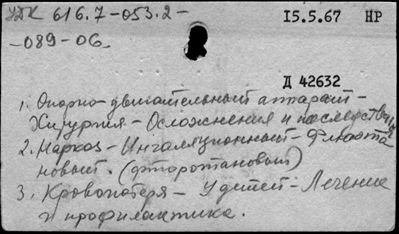 УДК 616.7-053.2-
-089-06.
15.5.67 НР
Д 42632
1. Опорно-двигательный аппарат-
Хирургия - Осложнения и последствия
2. Наркоз - Ингаляционный - Флюота
новый. (фторотановый)
3. Кровопотеря - У детей - Лечение
и профилактика.